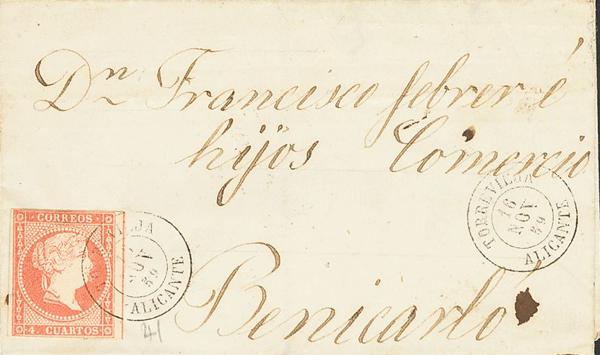 Dn Francisco febrer é
hijos Comercio
Benicarló
CORREOS
4. CUARTOS
VIEJA
NOV
59
ALICANTE
TORREVIEJA
16
NOV
59
ALICANTE